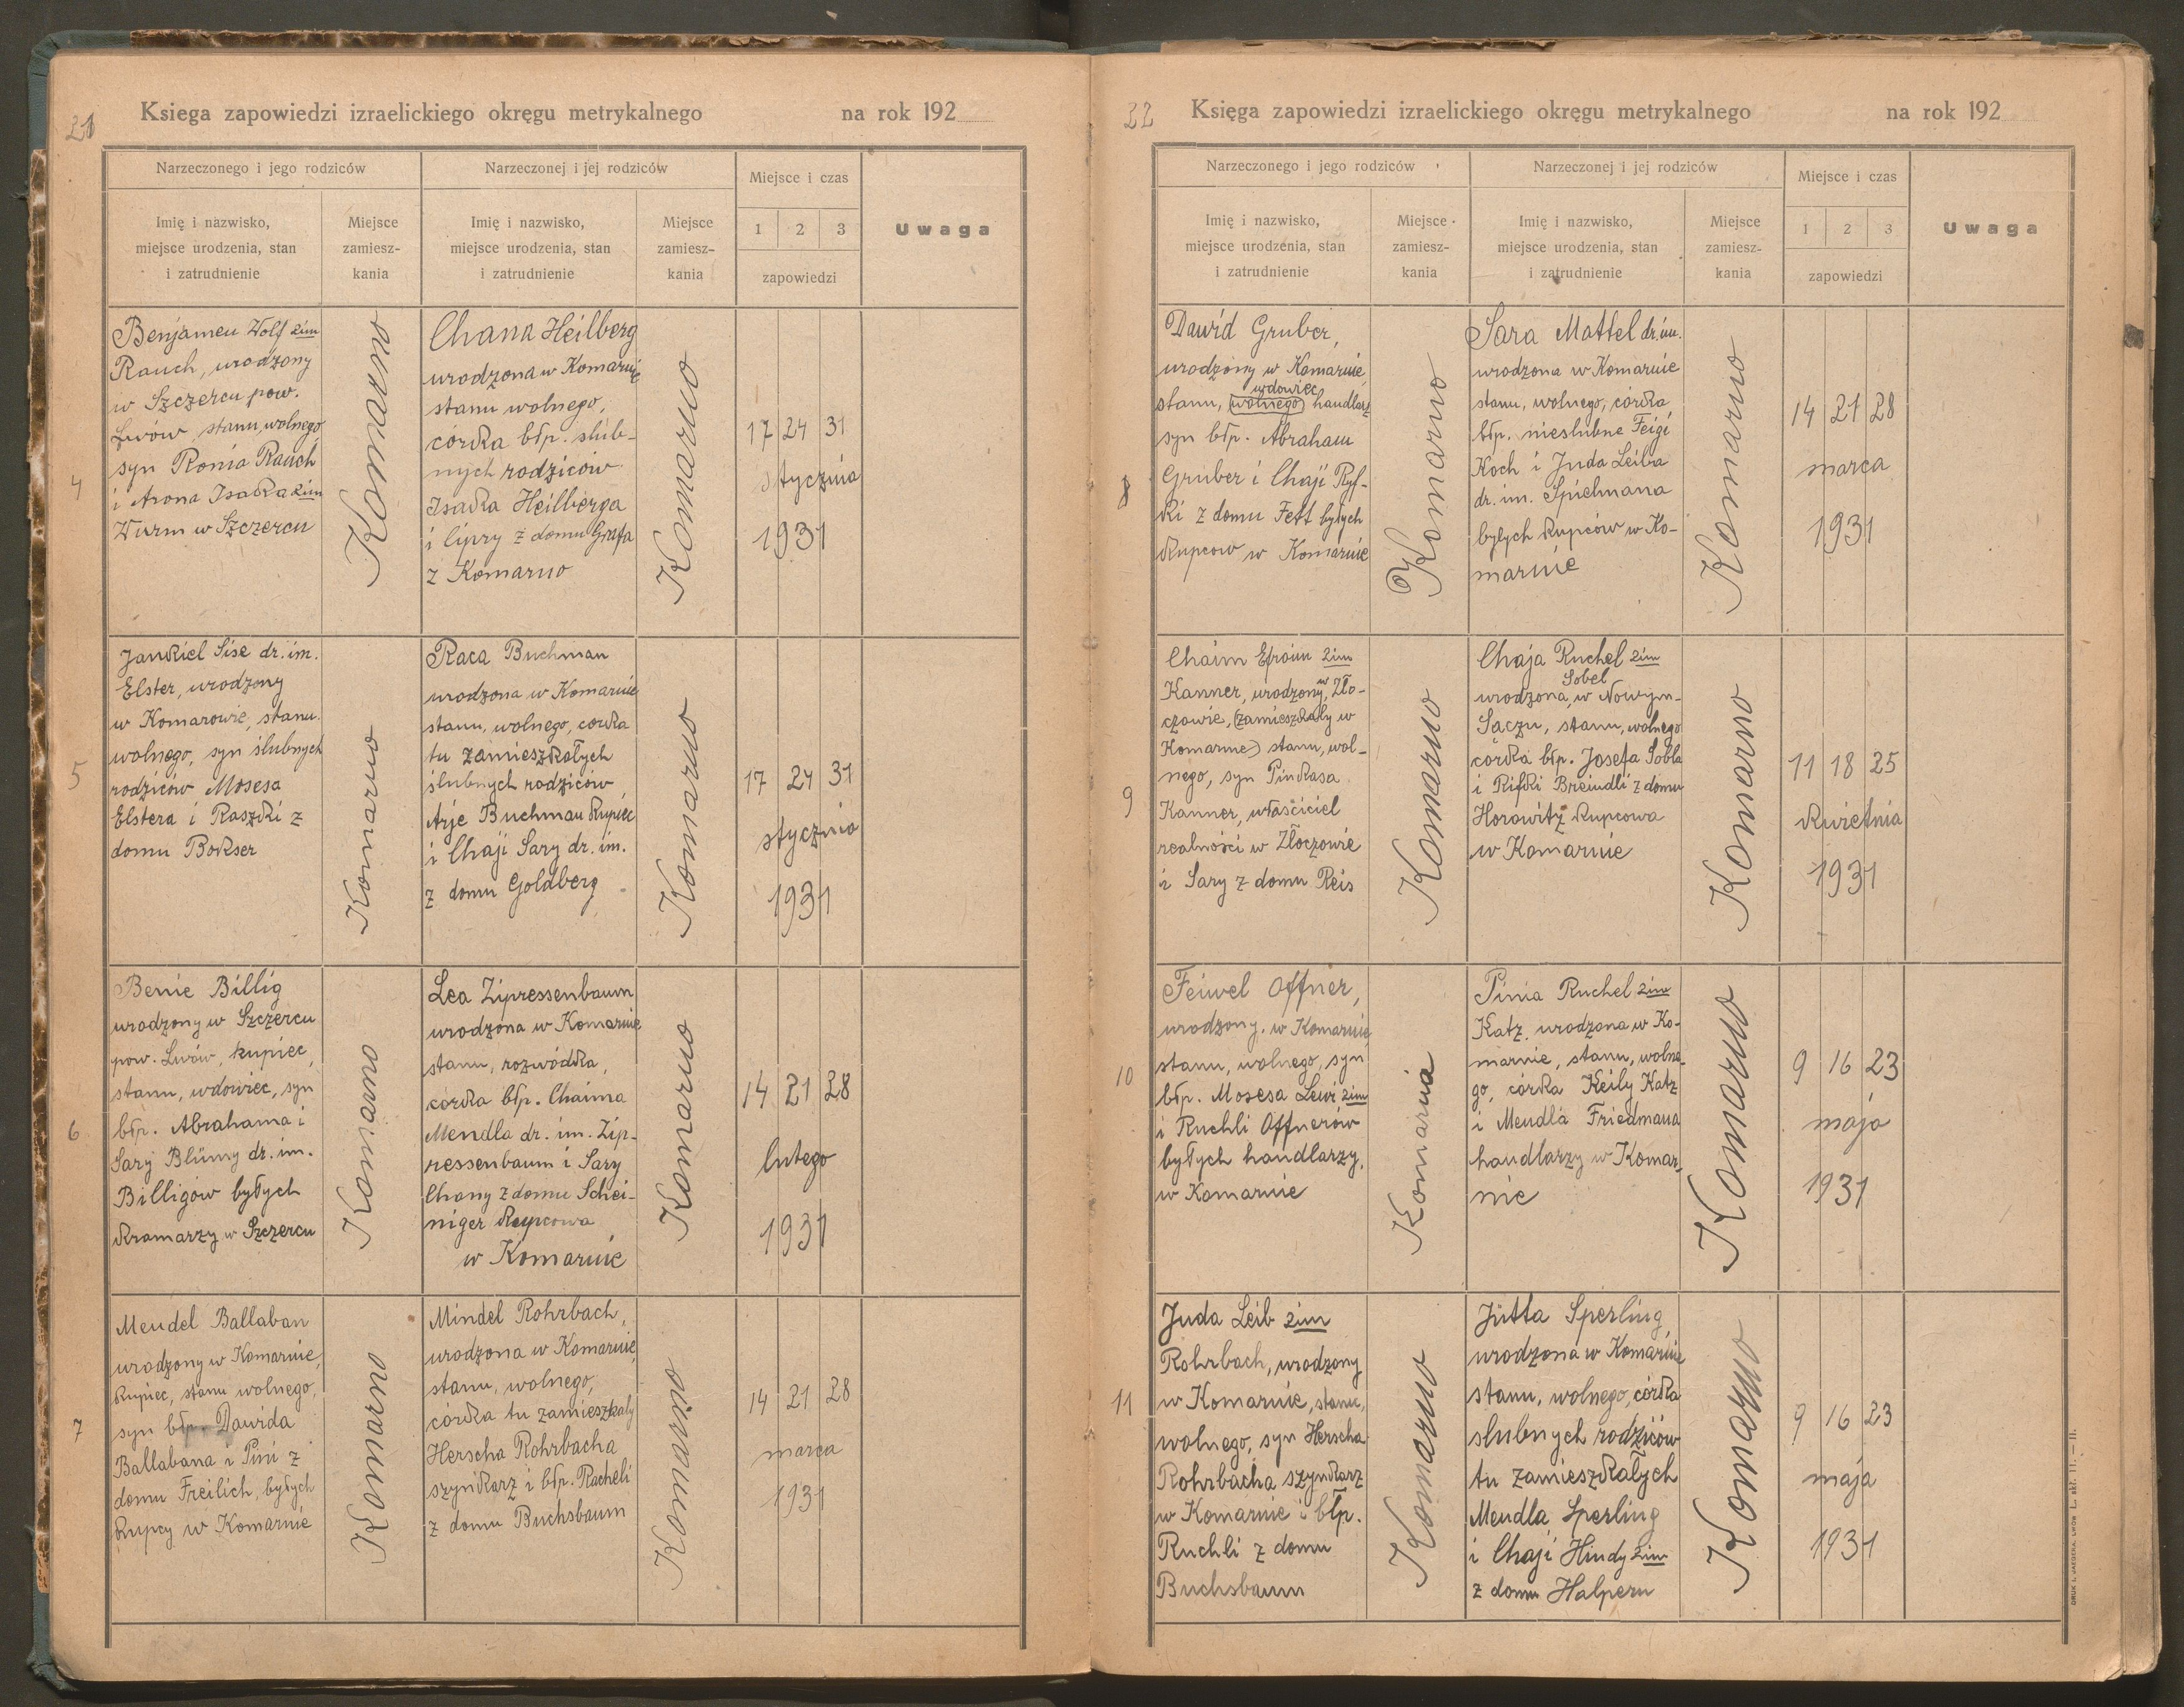 21
Księga zapowiedzi izraelickiego okręgu metrykalnego na rok 192
Narzeczonego i jego rodziców
Narzeczonej i jej rodziców
Miejsce i czas
Uwaga
Imię i nazwisko,
miejsce urodzenia, stan
i zatrudnienie
Miejsce
zamiesz-
kania
Imię i nazwisko,
miejsce urodzenia, stan
i zatrudnienie
Miejsce
zamiesz-
kania
1 2 3
zapowiedzi
4
Benjamen Wolf 2im
Rauch, urodzony
w Szczercu pow.
Lwów, stanu, wolnego
syn Ronia Rauch
i Arona Isaka 2im
Wurm w Szczercu
Komarno
Chana Heilberg
urodzona w Komarnie
stanu wolnego,
córka błp. ślub-
nych rodziców
Isaka Heilberga
i Cipry z domu Grafa
z Komarno
Komarno
17 24 31
stycznia
1931
5
Jankiel Sise dr. im.
Elster, urodzony
w Komarowie, stanu.
wolnego, syn ślubnych
rodziców Mosesa
Elstera i Raszki z
domu Bokser
Komarno
Raca Buchman
urodzona w Komarnie
stanu, wolnego, corka
tu zamieszkałych
ślubnych rodziców,
Arje Buchman kupiec
i Chaji Sary dr. im.
z domu Goldberg
Komarno
17 24 31
stycznia
1931
6
Benie Billig
urodzony w Szczercu
pow. Lwów, kupiec,
stanu, wdowiec, syn
błp. Abrahama i
Sary Blümy dr. im.
Billigów byłych
kramarzy w Szczercu
Komarno
Lea Zipressenbaum
urodzona w Komarnie
stanu, rozwódka,
córka błp. Chaima
Mendla dr. im. Zip-
ressenbaum i Sary
Chany z domu Schei-
niger kupcowa
w Komarnie
Komarno
14 21 28
lutego
1931
7
Mendel Ballaban
urodzony w Komarnie,
kupiec, stanu wolnego,
syn błp. Dawida
Ballabana i Pini z
domu Freilich, byłych
kupcy w Komarnie
Komarno
Mindel Rohrbach,
urodzona w Komarnie,
stanu, wolnego,
córka tu zamieszkały
Herscha Rohrbacha
szynkarz i błp. Racheli
z domu Buchsbaum
Komarno
14 21 28
marca
1931
22
Księga zapowiedzi izraelickiego okręgu metrykalnego na rok 192
Narzeczonego i jego rodziców
Narzeczonej i jej rodziców
Miejsce i czas
Uwaga
Imię i nazwisko,
miejsce urodzenia, stan
i zatrudnienie
Miejsce
zamiesz-
kania
Imię i nazwisko,
miejsce urodzenia, stan
i zatrudnienie
Miejsce
zamiesz-
kania
1 2 3
zapowiedzi
8
Dawid Gruber,
urodzony w Komarnie,
wdowiec
stanu, (wolnego) handlarz
syn błp. Abraham
Gruber i Chaji Ryf-
ki z domu Fett byłych
kupcow w Komarnie
Komarno
Sara Mattel dr. im.
urodzona w Komarnie
stanu, wolnego, córka
błp. nieslubne Feigi
Koch i Juda Leiba
dr. im. Spichmana
byłych kupców w Ko-
marnie
Komarno
14 21 28
marca
1931
9
Chaim Efroim 2im
Kanner, urodzony w Zło-
czowie, (zamieszkały w
Komarnie) stanu, wol-
nego, syn Pinkasa
Kanner, właściciel
realności w Złoczowie
i Sary z domu Reis
Komarno
Chaja Ruchel 2im
Sobel
urodzona, w Nowym-
Sączu, stanu, wolnego
córka błp. Josefa Sobla
i Rifki Breindli z domu
Horowitz kupcowa
w Komarnie
Komarno
11 18 25
kwietnia
1931
10
Feiwel Offner,
urodzony. w Komarnie
stanu, wolnego, syn
błp. Mosesa Lewi 2im
i Ruchli Offnerów
byłych handlarzy,
w Komarnie
Komarnia
Pinia Ruchel 2im
Katz, urodzona w Ko-
marnie, stanu, wolne-
go, córka Keily Katz
i Mendla Friedmana
handlarzy w Komar-
nie
Komarno
9 16 23
maja
1931
11
Juda Leib 2im
Rohrbach, urodzony
w Komarnie, stanu,
wolnego, syn Herscha
Rohrbacha szynkarz
w Komarnie i błp.
Ruchli z domu
Buchsbaum
Komarno
Jütta Sperling,
urodzona w Komarnie
stanu, wolnego, córka
slubnych rodziców
tu zamieszkałych
Mendla Sperling
i Chaji Hindy 2im
z domu Halpern
Komarno
9 16 23
maja
1931
DRUK I. JAEGERA, LWÓW L. skł. 11.—II.